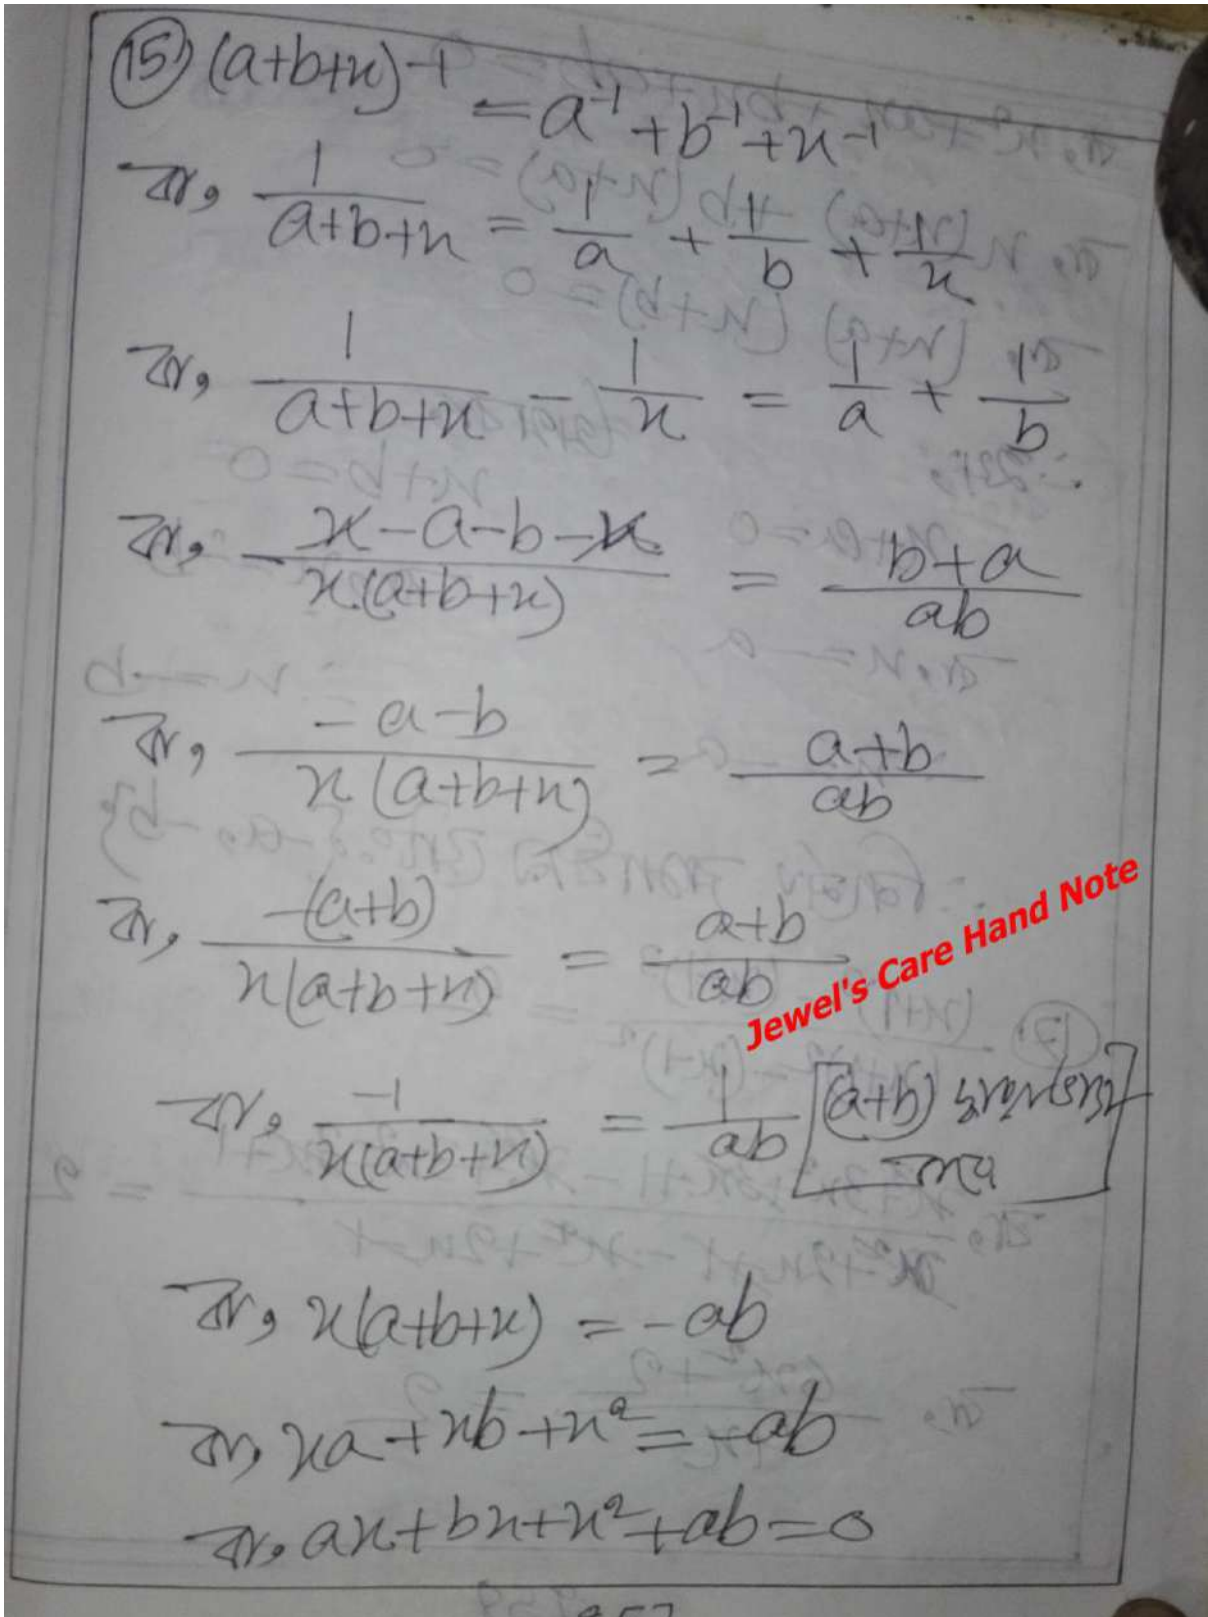 15) (a+b+x)-1 = a-1+b-1+x-1
বা, 1/(a+b+x) = 1/a + 1/b + 1/x
বা, 1/(a+b+x) - 1/x = 1/a + 1/b
বা, (x-a-b-x)/(x(a+b+x)) = (b+a)/(ab)
বা, (-a-b)/(x(a+b+x)) = (a+b)/(ab)
বা, (-(a+b))/(x(a+b+x)) = (a+b)/(ab)
Jewel's Care Hand Note
বা, -1/(x(a+b+x)) = 1/(ab) [(a+b)
বা, x(a+b+x) = -ab
বা, xa+xb+x² = -ab
বা, ax+bx+x²+ab=0